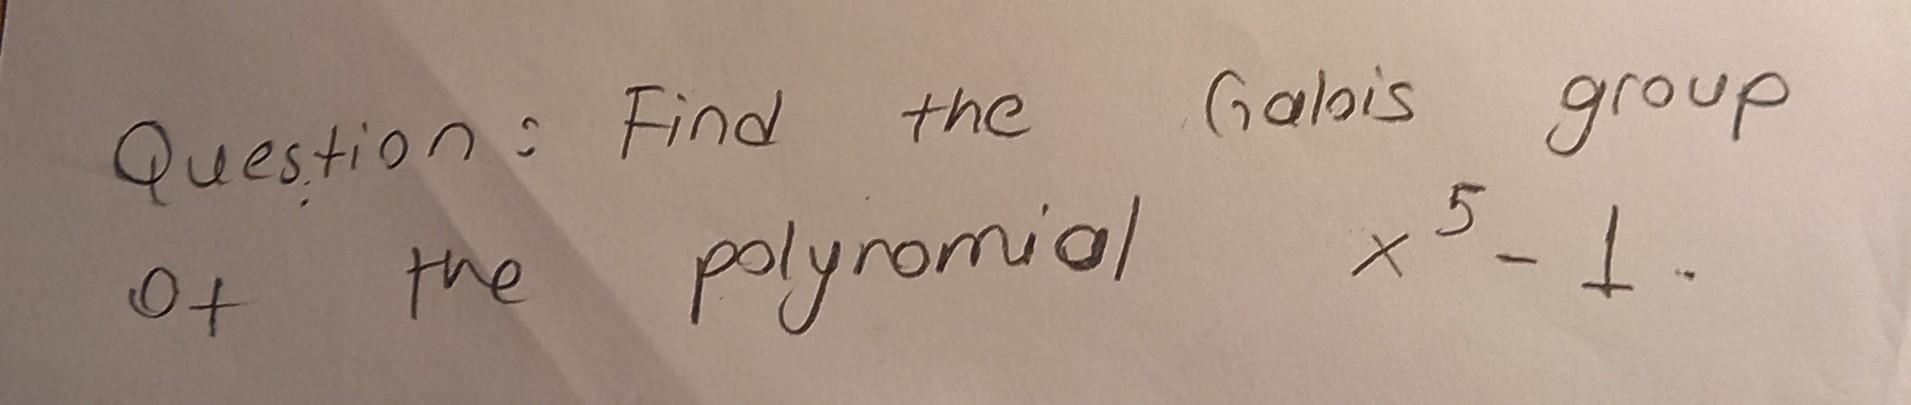 Question: Find the Galois group
of the polynomial x⁵ - 1.